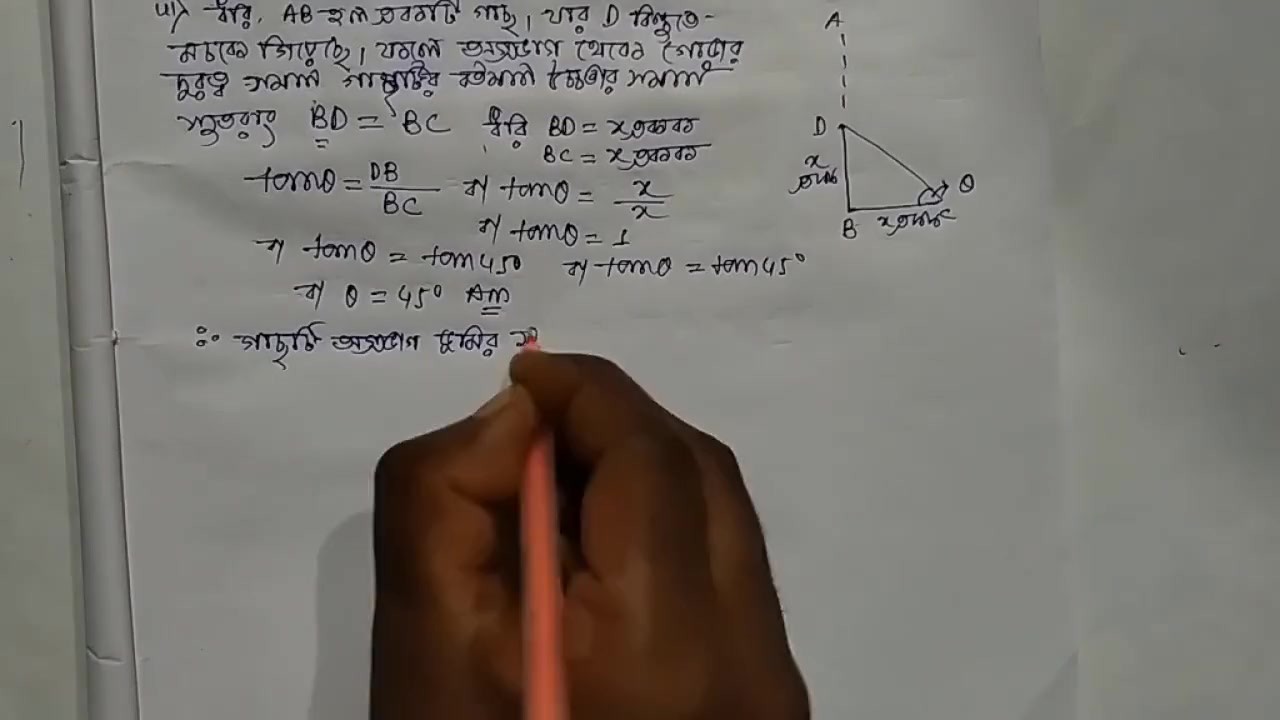 ধরি, AB হল একটি গাছ, যার D বিন্দুতে
মচকে গিয়েছে, ফলে অগ্রভাগ থেকে গোড়ার
দূরত্ব সমান গাছটির বর্তমান উচ্চতার সমান
সুতরাং BD = BC ধরি BD = x একক
BC = x একক
tanθ = DB/BC বা tanθ = x/x
বা tanθ = 1
বা tanθ = tan45° বা tanθ = tan45°
বা θ = 45° Ans
∴ গাছটি অগ্রভাগ ভূমির
A
D
x একক
B x একক C θ